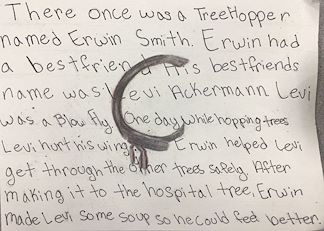 There once was a TreeHopper
named Erwin Smith. Erwin had
a bestfriend His bestfriends
name was Levi Ackermann Levi
was a Blow fly One day while hopping trees
Levi hurt his wing. Erwin helped Levi
get through the other trees safely. After
making it to the hospital tree, Erwin
made Levi some soup so he could feel better.